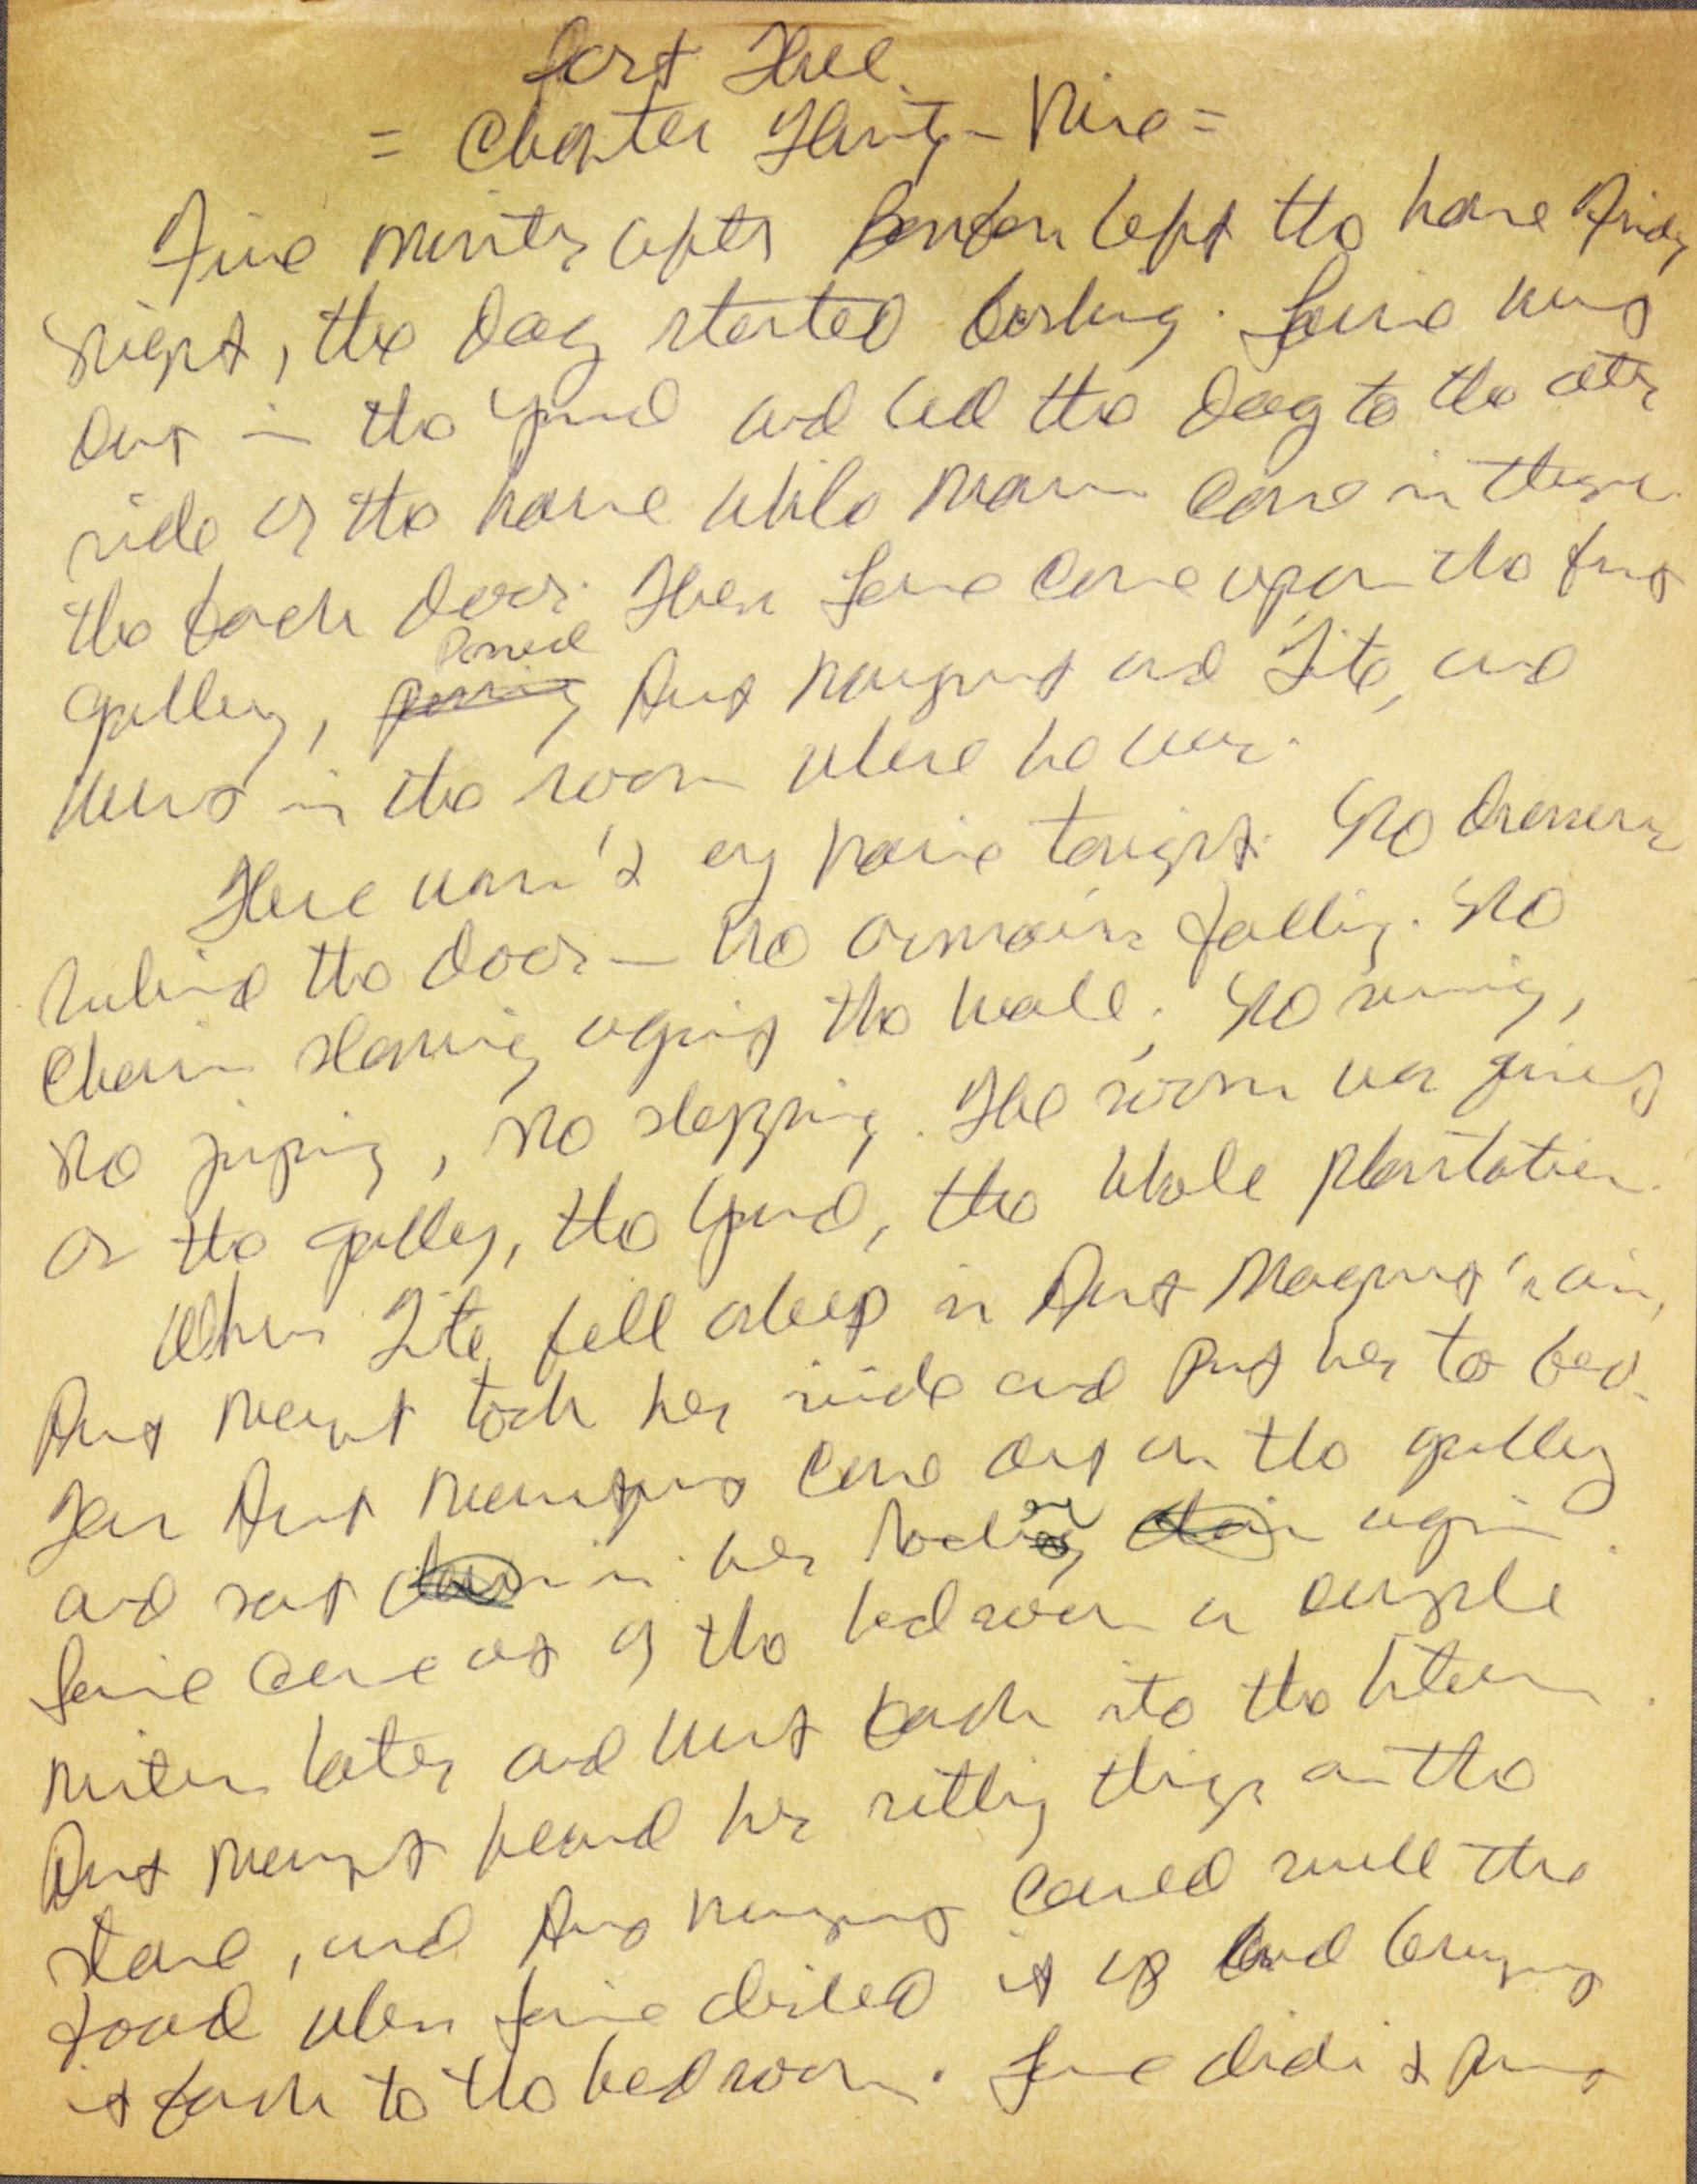 Part Three
= Chapter Thirty-Nine =
Five minutes after Bonbon left the house Friday
night, the dog started barking. Louise went
out in the yard and led the dog to the other
side of the house while Marcus came in through
the back door. Then Louise came up on the front
gallery, passed Aunt Margaret and Tite, and
went in the room where he was.
There wasn't any noise tonight. No dressers
behind the door — no armoirs falling. No
chairs slamming against the wall; No running,
no jumping, no slapping. The room was quiet
as the gallery, the yard, the whole plantation.
When Tite fell asleep in Aunt Margaret's arms,
Aunt Margaret took her inside and put her to bed.
Then Aunt Margaret came out on the gallery
and sat in her rocker again.
Louise came out of the bedroom a couple
minutes later and went back into the kitchen.
Aunt Margaret heard her setting things on the
stove, and Aunt Margaret could smell the
food when Louise dished it up and brought
it back to the bedroom. Louise didn't